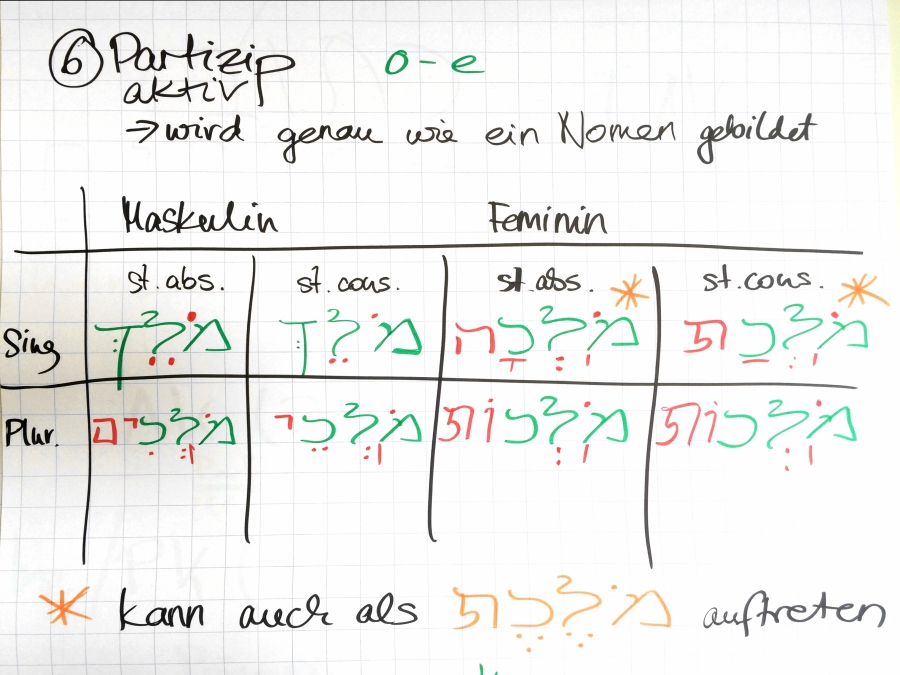 ⑥ Partizip o - e
aktiv
→ wird genau wie ein Nomen gebildet
Maskulin Feminin
st. abs. st. cons. st. abs. * st. cons. *
Sing מֹלֵךְ מֹלֵךְ מֹֽלְכָה מֹֽלְכַת
Plur. מֹֽלְכִים מֹֽלְכֵי מֹֽלְכוֹת מֹֽלְכוֹת
* kann auch als מֹלֶכֶת auftreten